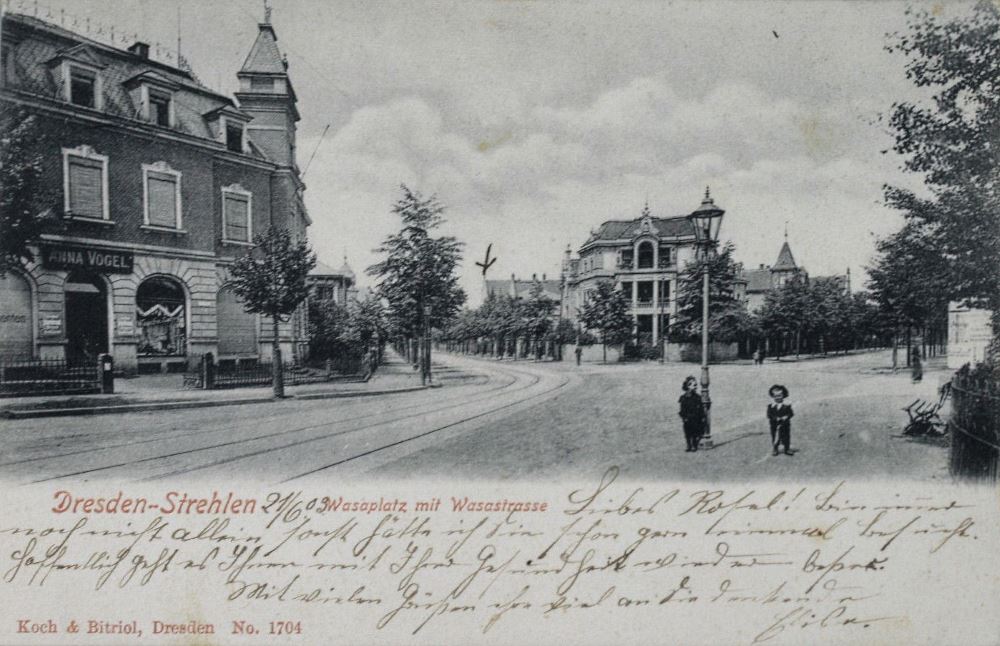 ANNA VOGEL
Dresden-Strehlen 21/6 03 Wasaplatz mit Wasastrasse Liebes Rosel! Bin immer
noch nicht allein, sonst hätte ich Sie schon gern einmal besucht.
Hoffentlich geht es Ihnen mit Ihrer Gesundheit wieder besser.
Mit vielen Grüßen Ihre viel an Sie denkende
Koch & Bitriol, Dresden No. 1704